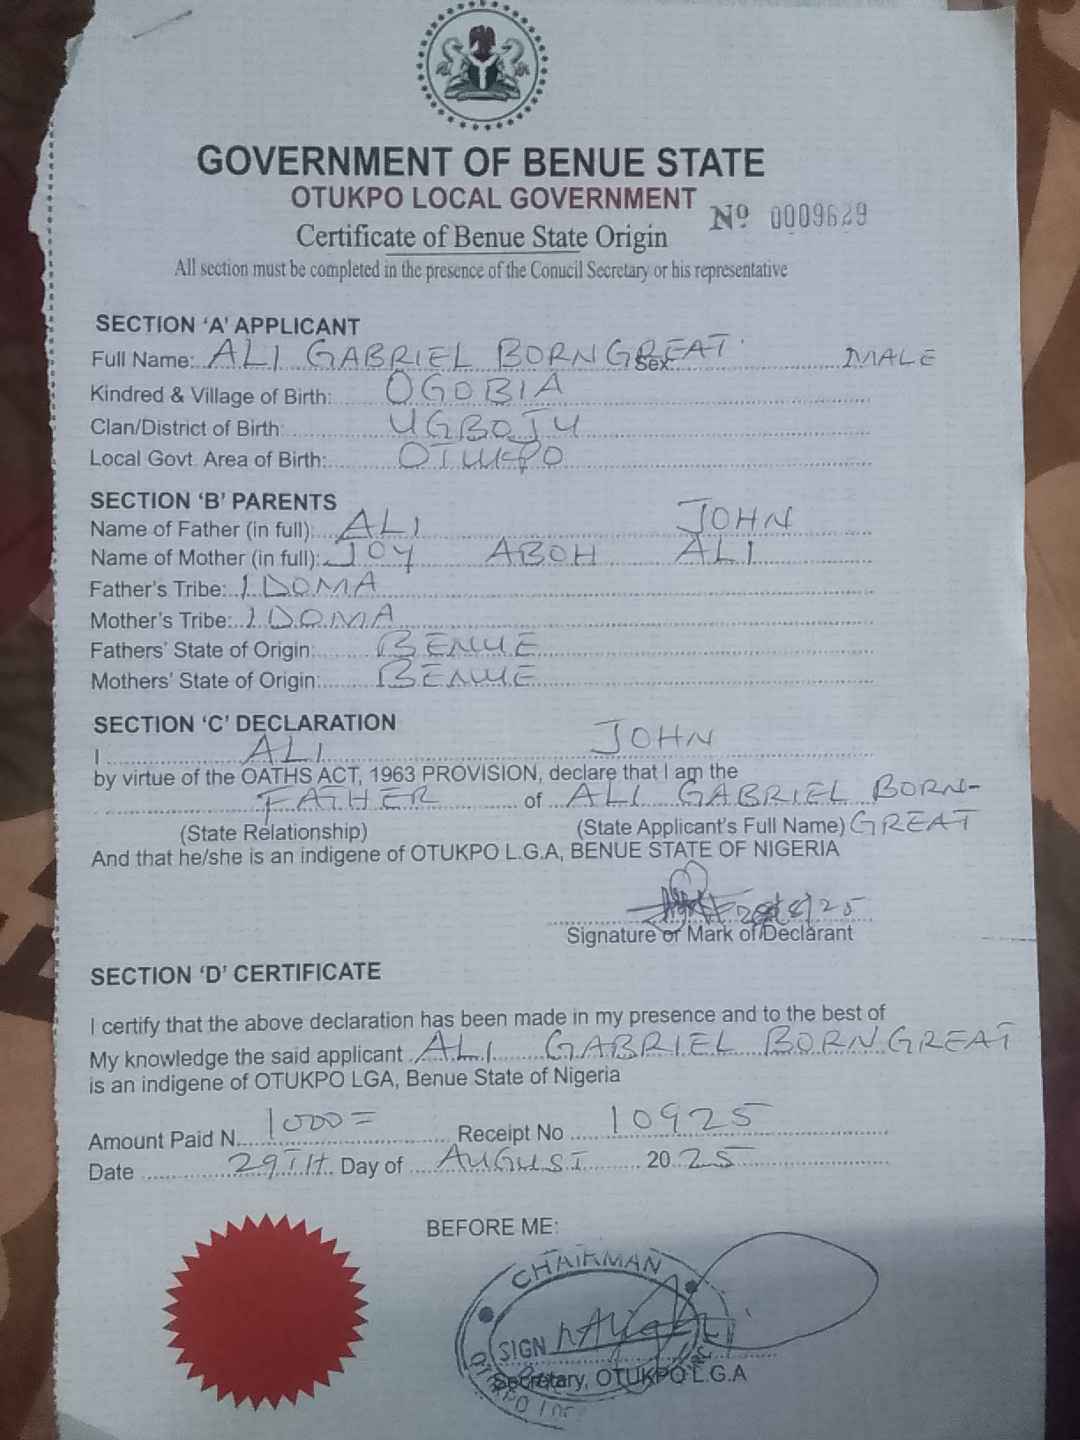 GOVERNMENT OF BENUE STATE
OTUKPO LOCAL GOVERNMENT
Nº 0009629
Certificate of Benue State Origin
All section must be completed in the presence of the Conucil Secretary or his representative
SECTION ‘A’ APPLICANT
Full Name: ALI GABRIEL BORNGREAT Sex: MALE
Kindred & Village of Birth: OGOBIA
Clan/District of Birth: UGBOJU
Local Govt. Area of Birth: OTUKPO
SECTION ‘B’ PARENTS
Name of Father (in full): ALI JOHN
Name of Mother (in full): JOY ABOH ALI
Father's Tribe: IDOMA
Mother's Tribe: IDOMA
Fathers' State of Origin: BENUE
Mothers' State of Origin: BENUE
SECTION ‘C’ DECLARATION
I ALI JOHN
by virtue of the OATHS ACT, 1963 PROVISION, declare that I am the
FATHER of ALI GABRIEL BORN-
(State Relationship) (State Applicant's Full Name) GREAT
And that he/she is an indigene of OTUKPO L.G.A, BENUE STATE OF NIGERIA
8/25
Signature or Mark of Declarant
SECTION ‘D’ CERTIFICATE
I certify that the above declaration has been made in my presence and to the best of
My knowledge the said applicant ALI GABRIEL BORNGREAT
is an indigene of OTUKPO LGA, Benue State of Nigeria
Amount Paid N 1000= Receipt No 10925
Date 29TH Day of AUGUST 2025
BEFORE ME:
CHAIRMAN
SIGN
Secretary, OTUKPO L.G.A
OTUKPO